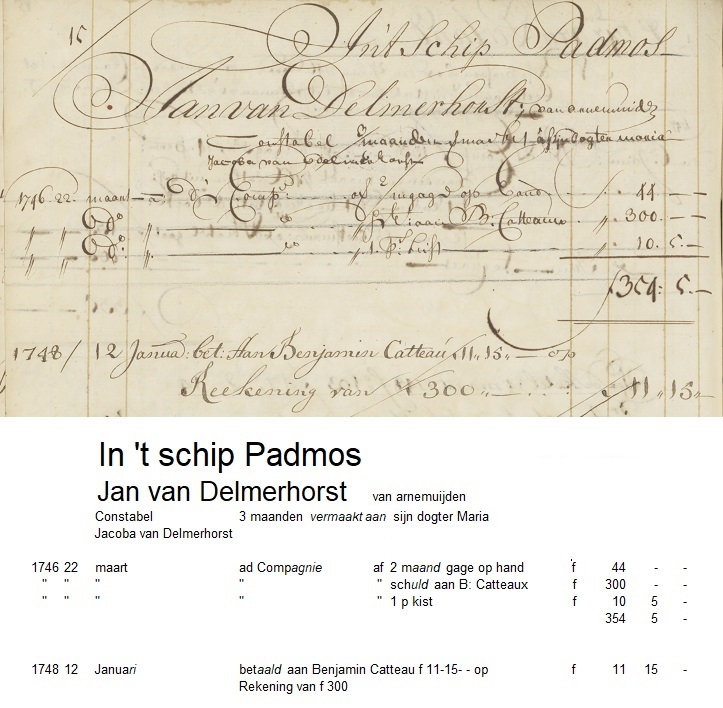 15
Int Schip Padmos
Jan van Delmerhorst, van arnemuide
Constabel 3 maanden sijn dogter maria
Jacoba van Delmerhorst
1746 22 maart a d Comp: af 2 m gagie op hand f 44 — —
" " " " " aan B. Catteaux " 300. — —
" " " " " 1 p: kist " 10. 5. —
f 354: 5. —
1748 / 12 Janua: bet: Aan Benjamin Catteau f 11,, 15,, — op
Reekening van f 300 ,, — f 11 ,, 15 ,, —
In 't schip Padmos
Jan van Delmerhorst van arnemuijden
Constabel 3 maanden vermaakt aan sijn dogter Maria
Jacoba van Delmerhorst
1746 22 maart ad Compagnie af 2 maand gage op hand f 44 - -
" " " " " schuld aan B: Catteaux f 300 - -
" " " " " 1 p kist f 10 5 -
354 5 -
1748 12 Januari betaald aan Benjamin Catteau f 11-15- - op f 11 15 -
Rekening van f 300